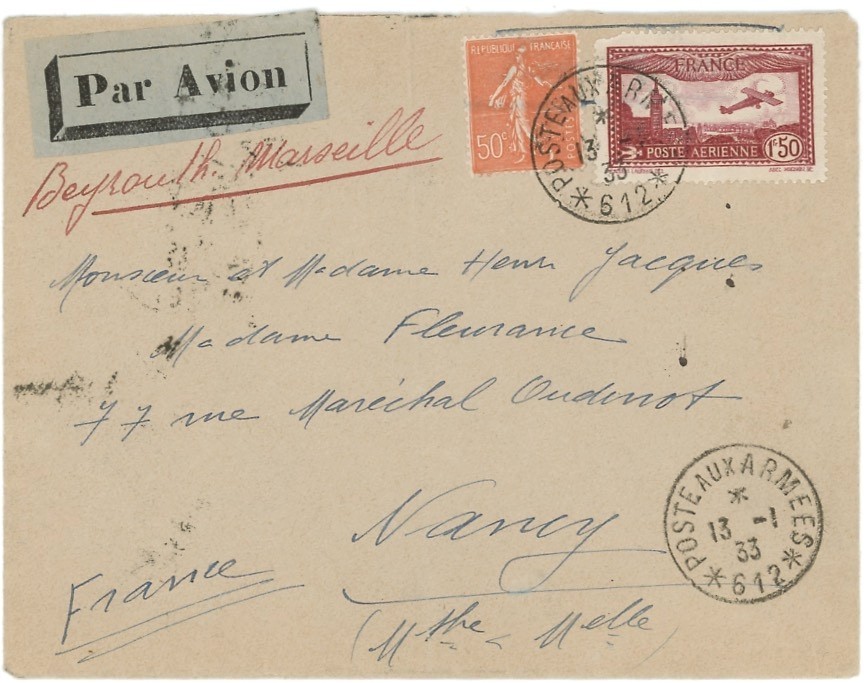 Par Avion
Beyrouth. Marseille
REPUBLIQUE FRANÇAISE
50c
POSTES
FRANCE
POSTE AÉRIENNE
1F50
POSTE AUX ARMEES
13
33
* 612 *
Monsieur et Madame Henri Jacques
Madame Fleurance
77 rue Maréchal Oudinot
Nancy
France
(Mthe & Melle)
POSTE AUX ARMEES
13 -1
33
* 612 *